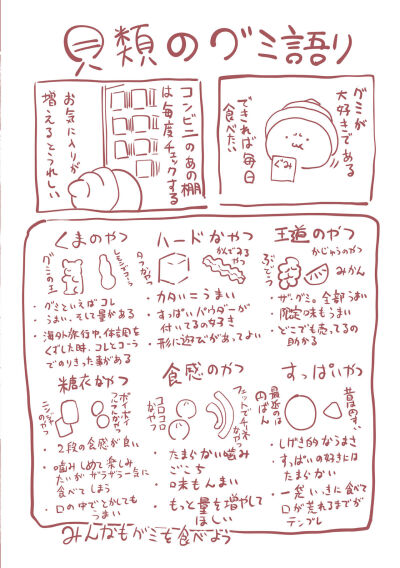 貝類のグミ語り
グミが
大好きである
できれば毎日
食べたい
ぐみ
コンビニのあの棚
は毎度チェックする
お気に入りが
増えるとうれしい
王道のやつ
かじゅうのやつ
ぶどう
みかん
・ザ・グミ。全部うまい
・限定味もうまい
・どこでも売ってるの
助かる
ハードなやつ
かんでるやつ
・カタい＝うまい
・すっぱいパウダーが
付いてるの好き
・形に遊びがあってよい
くまのやつ
グミの王
・グミといえばコレ
・うまい、そして量がある
・海外旅行中、体調を
くずした時、コレとコーラ
でのりきった事がある
すっぱいやつ
最近のは
円ばん
・しげき的なうまさ
・すっぱいの好きには
たまらない
・一袋いっきに食べて
口が荒れるまでが
テンプレ
食感のやつ
コロコロ
なやつ
・たまらない噛み
ごこち
・味もんまい
・もっと量を増やして
ほしい
糖衣なやつ
・2段の食感が良い
・噛みしめて楽しみ
たいがザラザラ一気に
食べてしまう
・口の中でとかしても
うまい
みんなもグミを食べよう